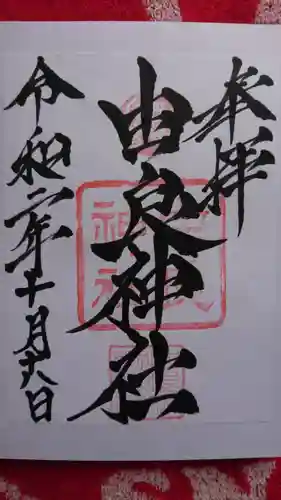 奉拝
由良神社
令和二年十月十八日